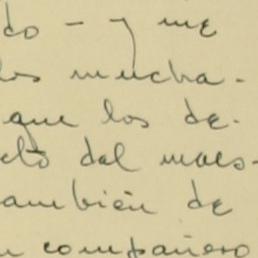 do - y me
los mucha-
que los de-
cto del maes-
también de
n compañero